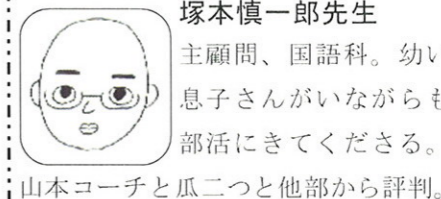 塚本慎一郎先生
主顧問、国語科。幼い
息子さんがいながらも
部活にきてくださる。
山本コーチと瓜二つと他部から評判。